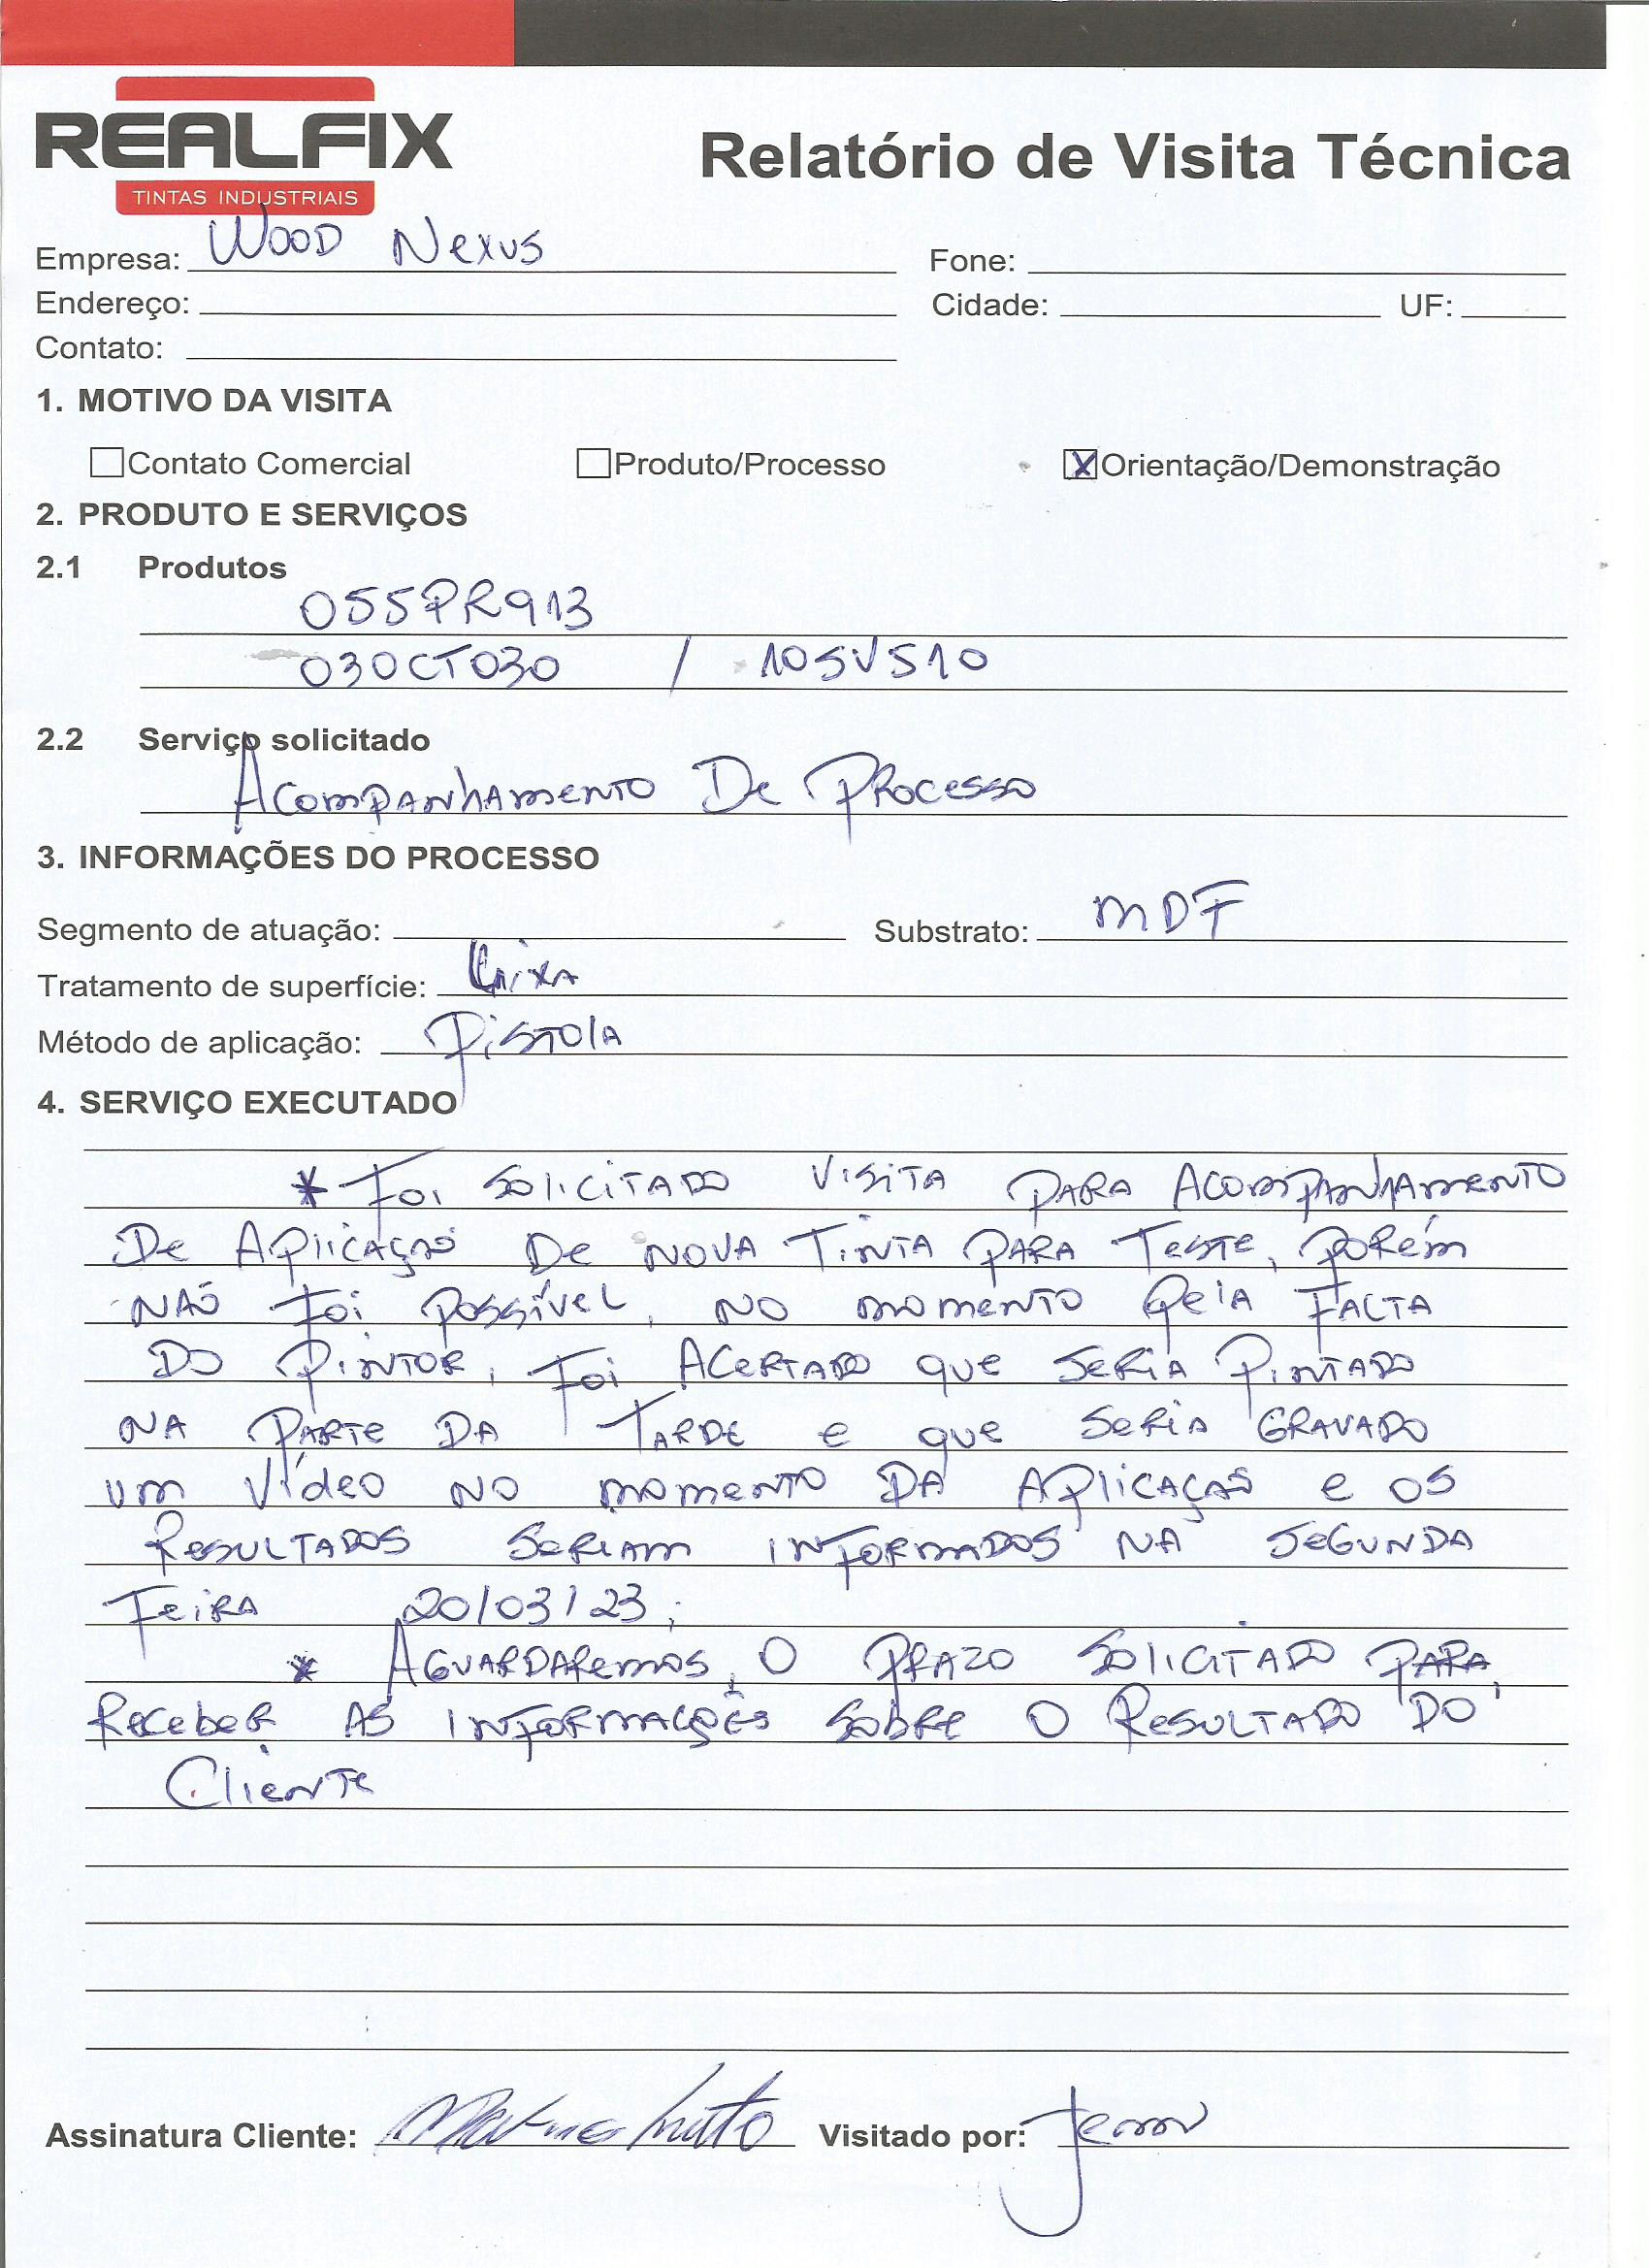 REALFIX
TINTAS INDUSTRIAIS
Relatório de Visita Técnica
Empresa: Wood Nexus Fone:
Endereço: Cidade: UF:
Contato:
1. MOTIVO DA VISITA
Contato Comercial Produto/Processo X Orientação/Demonstração
2. PRODUTO E SERVIÇOS
2.1 Produtos
055PR913
030CT030 / 105VS10
2.2 Serviço solicitado
Acompanhamento De Processo
3. INFORMAÇÕES DO PROCESSO
Segmento de atuação: Substrato: MDF
Tratamento de superfície: Lixa
Método de aplicação: Pistola
4. SERVIÇO EXECUTADO
* Foi solicitado visita para acompanhamento
De Aplicação De nova Tinta para Teste, porém
não foi possível, no momento pela falta
Do pintor, foi acertado que seria pintado
na parte da Tarde e que seria gravado
um vídeo no momento da aplicação e os
Resultados seriam informados na segunda
Feira 20/03/23;
* Aguardaremos o prazo solicitado para
Receber as informações sobre o Resultado do
Cliente
Assinatura Cliente: Visitado por: